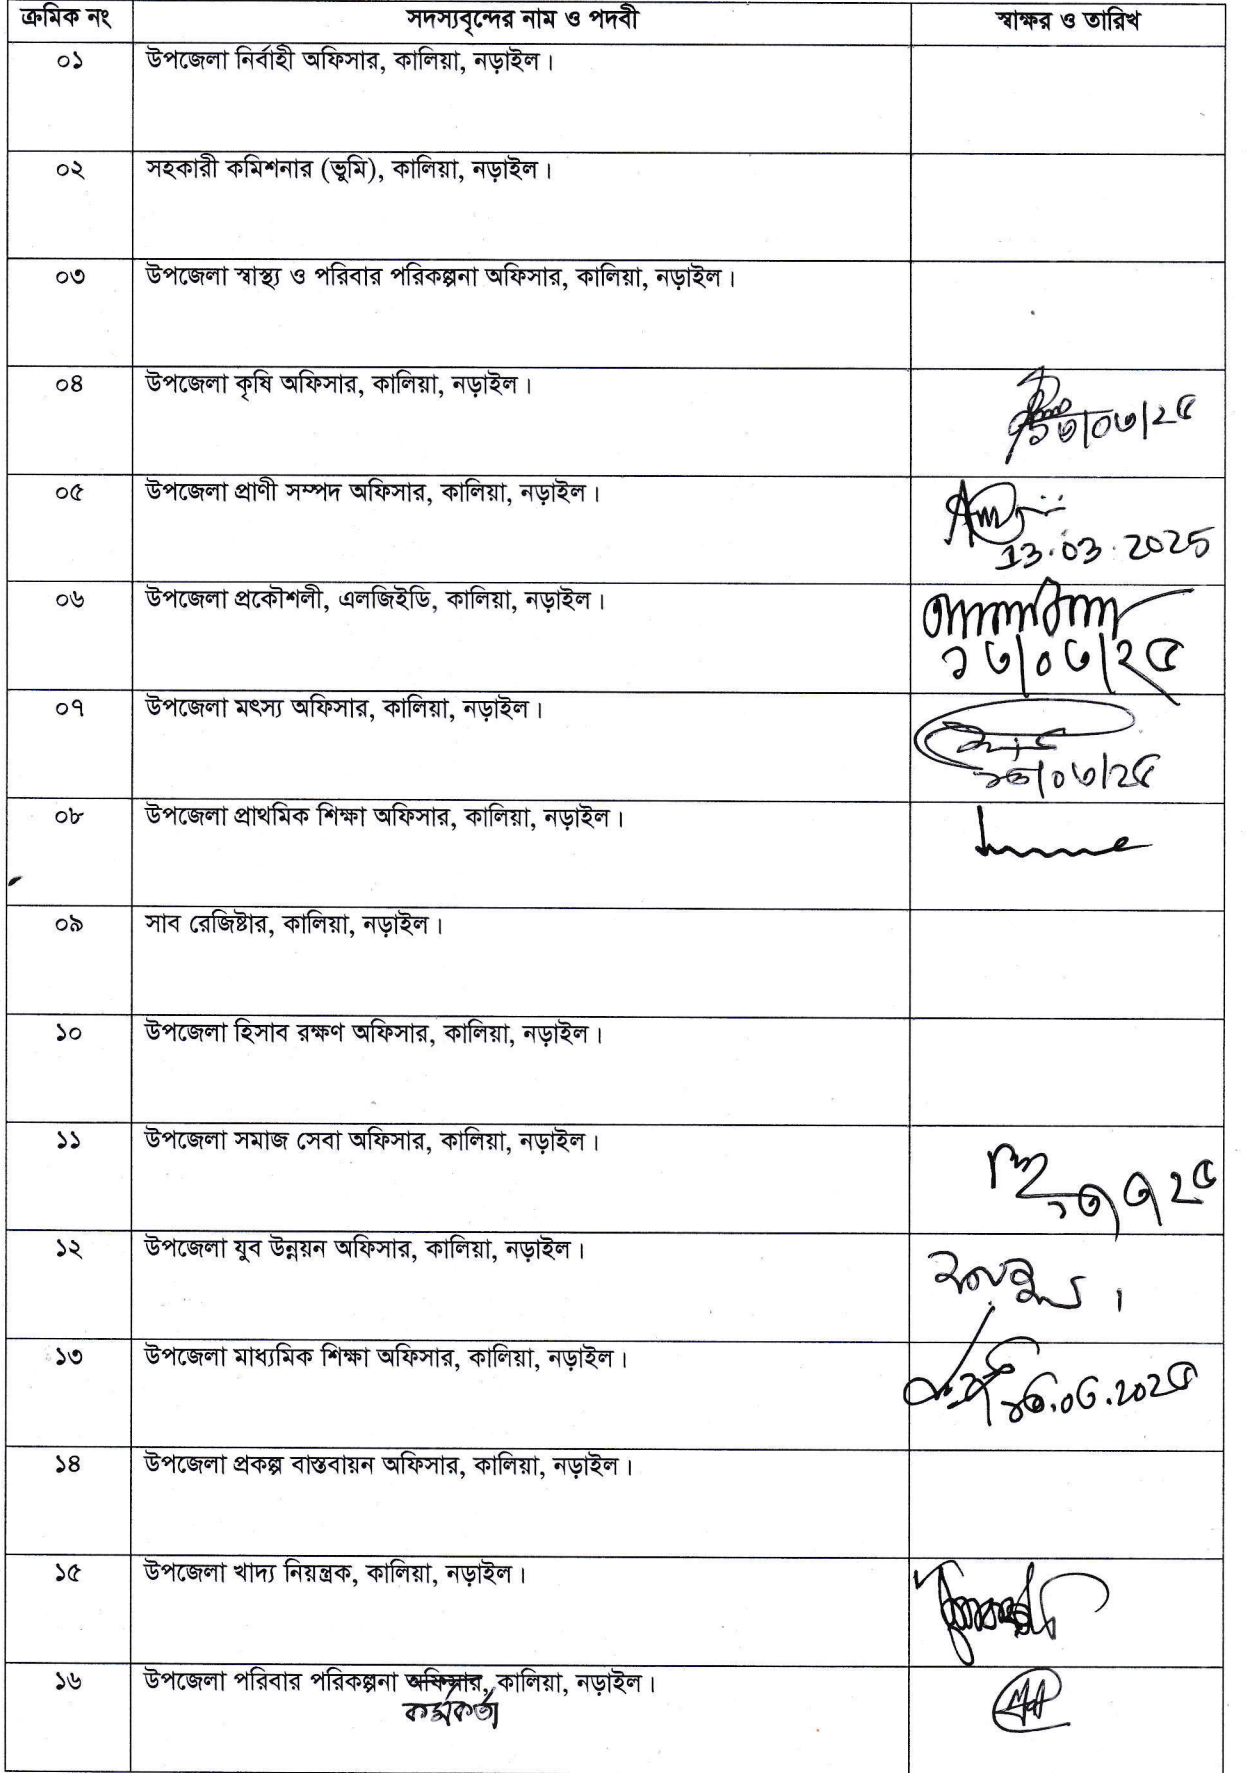 ক্রমিক নং সদস্যবৃন্দের নাম ও পদবী স্বাক্ষর ও তারিখ
০১ উপজেলা নির্বাহী অফিসার, কালিয়া, নড়াইল।
০২ সহকারী কমিশনার (ভূমি), কালিয়া, নড়াইল।
০৩ উপজেলা স্বাস্থ্য ও পরিবার পরিকল্পনা অফিসার, কালিয়া, নড়াইল।
০৪ উপজেলা কৃষি অফিসার, কালিয়া, নড়াইল।
১৩/০৩/২৫
০৫ উপজেলা প্রাণী সম্পদ অফিসার, কালিয়া, নড়াইল।
13.03.2025
০৬ উপজেলা প্রকৌশলী, এলজিইডি, কালিয়া, নড়াইল।
১৩/০৩/২৫
০৭ উপজেলা মৎস্য অফিসার, কালিয়া, নড়াইল।
১৩/০৩/২৫
০৮ উপজেলা প্রাথমিক শিক্ষা অফিসার, কালিয়া, নড়াইল।
০৯ সাব রেজিষ্টার, কালিয়া, নড়াইল।
১০ উপজেলা হিসাব রক্ষণ অফিসার, কালিয়া, নড়াইল।
১১ উপজেলা সমাজ সেবা অফিসার, কালিয়া, নড়াইল।
১৩/৩/২৫
১২ উপজেলা যুব উন্নয়ন অফিসার, কালিয়া, নড়াইল।
১৩ উপজেলা মাধ্যমিক শিক্ষা অফিসার, কালিয়া, নড়াইল।
১৩.০৩.২০২৫
১৪ উপজেলা প্রকল্প বাস্তবায়ন অফিসার, কালিয়া, নড়াইল।
১৫ উপজেলা খাদ্য নিয়ন্ত্রক, কালিয়া, নড়াইল।
১৬ উপজেলা পরিবার পরিকল্পনা অফিসার, কালিয়া, নড়াইল।
কর্মকর্তা